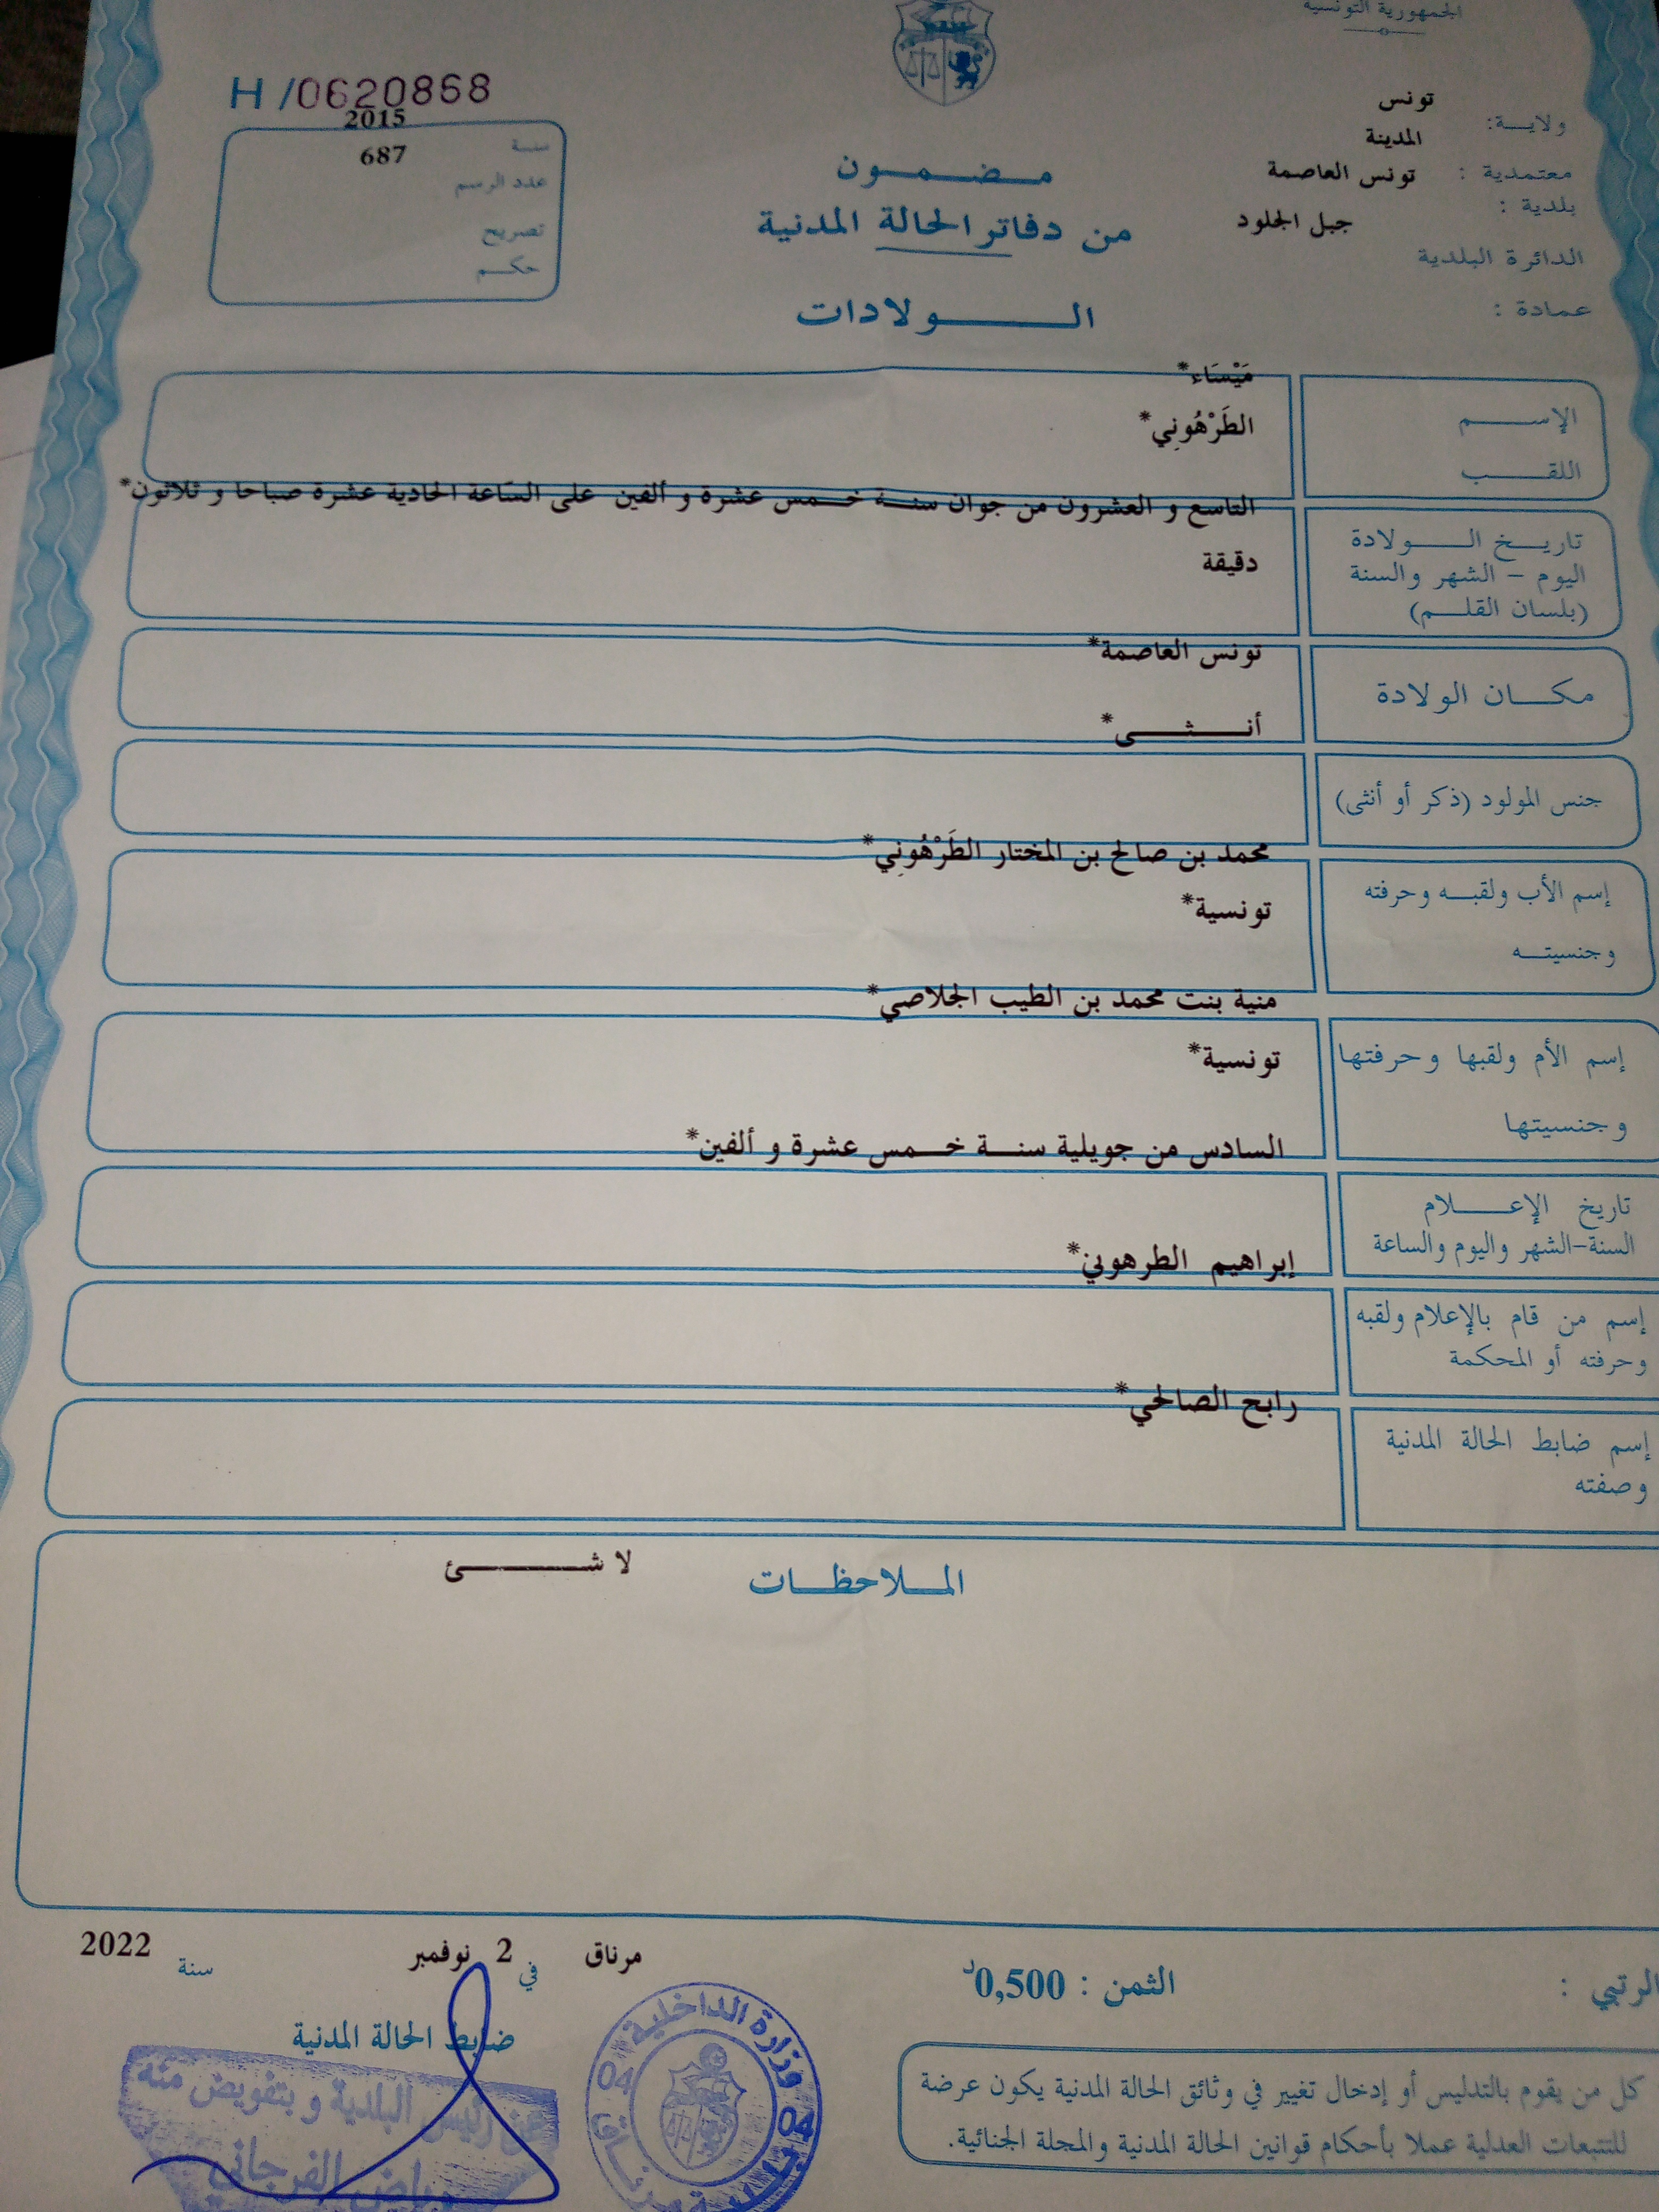 الجمهورية التونسية
ولايـــة: تونس
المدينة
معتمدية : تونس العاصمة
بلدية :
جبل الجلود
الدائرة البلدية
عمادة :
H /0620868
2015
سنة
687
عدد الرسم
تصريح
حكـــم
مــضــمــون
من دفاتر الحالة المدنية
الــــولادات
مَيْسَاء*
الإســـــم
الطَرْهُوني*
اللقـــــب
التاسع و العشرون من جوان سنــة خــمس عشرة و ألفين على السّاعة الحادية عشرة صباحا و ثلاثون*
دقيقة
تاريـــخ الـــــولادة
اليوم – الشهر والسنة
(بلسان القلـــم)
تونس العاصمة*
مكـــان الولادة
أنـــثـــى*
جنس المولود (ذكر أو أنثى)
محمد بن صالح بن المختار الطَرْهُوني*
إسم الأب ولقبــه وحرفته
تونسية*
وجنسيتـــه
منية بنت محمد بن الطيب الجلاصي*
إسم الأم ولقبها وحرفتها
تونسية*
وجنسيتها
السادس من جويلية سنــة خـــمس عشرة و ألفين*
تاريخ الإعـــــلام
السنة-الشهر واليوم والساعة
إبراهيم الطرهوني*
إسم من قام بالإعلام ولقبه
وحرفته أو المحكمة
رابح الصالحي*
إسم ضابط الحالة المدنية
وصفته
المــلاحظــات
لا شـــــــئ
الرتبي :
الثمن : 0,500د
مرناق في 2 نوفمبر سنة 2022
ضابط الحالة المدنية
عن رئيس البلدية وبتفويض منه
رياض الفرجاني
وزارة الداخلية
04
04
كل من يقوم بالتدليس أو إدخال تغيير في وثائق الحالة المدنية يكون عرضة
للتتبعات العدلية عملا بأحكام قوانين الحالة المدنية والمجلة الجنائية.